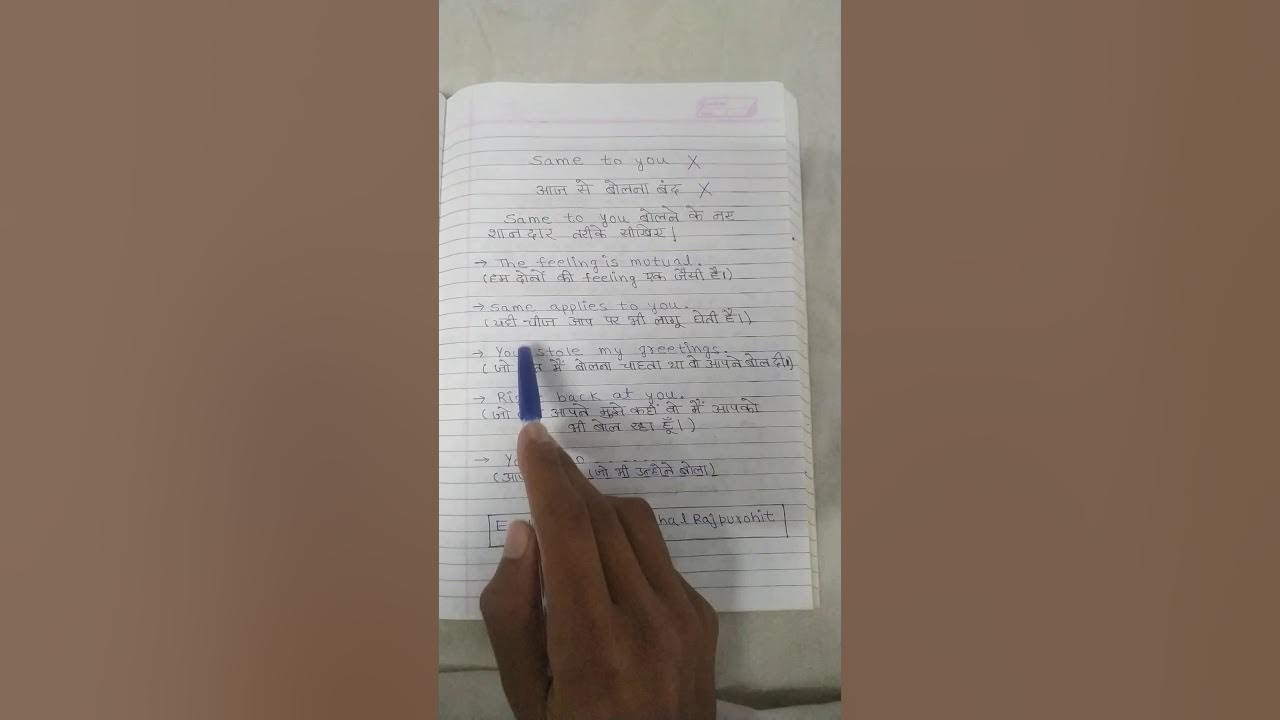 Same to you X
आज से बोलना बंद X
Same to you बोलने के नए
शानदार तरीके सीखिए।
→ The feeling is mutual.
(हम दोनों की feeling एक जैसी है।)
→ Same applies to you.
(यही चीज आप पर भी लागू होती है।)
→ You stole my greetings.
(जो मैं बोलना चाहता था वो आपने बोल दी।)
→ back at you.
(जो आपने मुझे कहाँ वो मैं आपको
भी बोल रहा हूँ।)
→
(जो भी उन्होंने बोला)
Rajpurohit